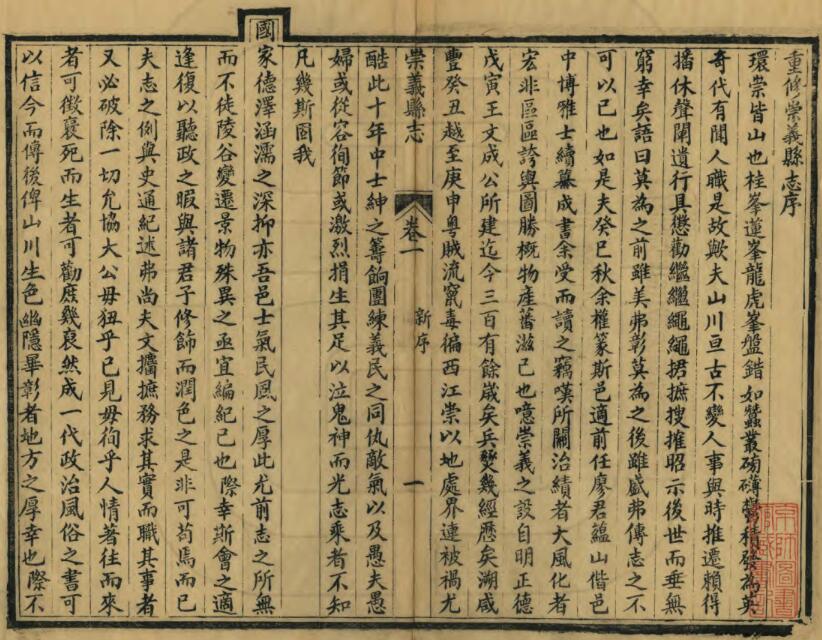 重修崇義縣志序
環崇皆山也桂峯蓮峯龍虎峯盤錯如蠶叢磅礴鬱積發為英
奇代有聞人職是故歟夫山川亘古不變人事與時推遷賴得
播休聲闡遺行具懲勸繼繼繩繩捃摭搜摧昭示後世而垂無
窮幸矣語曰莫為之前雖美弗彰莫為之後雖盛弗傳志之不
可以已也如是夫癸巳秋余權篆斯邑適前任廖君蘊山偕邑
中博雅士續纂成書余受而讀之竊嘆所關治績者大風化者
宏非區區誇輿圖勝概物產蕃滋已也噫崇義之設自明正德
戊寅王文成公所建迄今三百有餘歲矣兵燹幾經歷矣溯咸
豐癸丑越至庚申粵賊流竄毒徧西江崇以地處界連被禍尤
崇義縣志
卷一
新序
一
酷此十年中士紳之籌餉團練義民之同仇敵氣以及愚夫愚
婦或從容徇節或激烈捐生其足以泣鬼神而光志乘者不知
凡幾斯固我
國家德澤涵濡之深抑亦吾邑士氣民風之厚此尤前志之所無
而不徒陵谷變遷景物殊異之亟宜編紀已也際幸斯會之適
逢復以聽政之暇與諸君子修飾而潤色之是非可苟焉而已
夫志之例與史通紀述弗尚夫文擩摭務求其實而職其事者
又必破除一切允協大公毋狃乎已見毋徇乎人情著往而來
者可徵襃死而生者可勸庶幾裒然成一代政治風俗之書可
以信今而傳後俾山川生色幽隱畢彰者地方之厚幸也際不